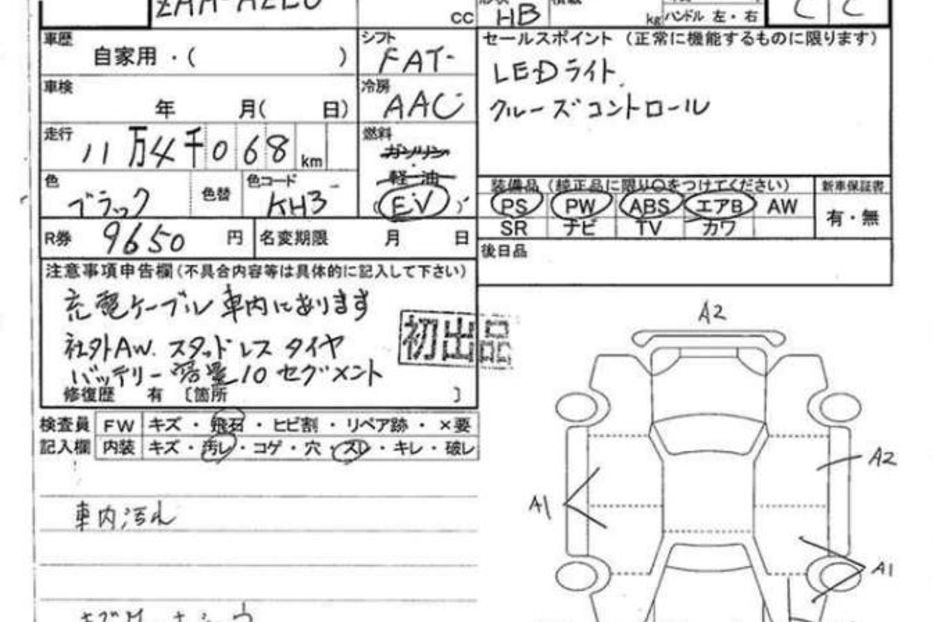 CC HB kg ハンドル 左・右 C C
車歴 自家用・( )
シフト FAT
セールスポイント (正常に機能するものに限ります)
LEDライト
クルーズコントロール
車検 年 月( 日)
冷房 AAC
走行 11万4千068 km
燃料 ガソリン・軽油・(EV)
色 ブラック 色替 色コード KH3
装備品 (純正品に限り○をつけてください) 新車保証書
PS PW ABS エアB AW 有・無
SR ナビ TV カワ
R券 9650 円 名変期限 月 日
後日品
注意事項申告欄(不具合内容等は具体的に記入して下さい)
充電ケーブル車内にあります
社外AW. スタッドレスタイヤ
バッテリー容量10セグメント
初出品
修復歴 有 〔箇所 〕
検査員 FW キズ・飛石・ヒビ割・リペア跡・×要
記入欄 内装 キズ・汚レ・コゲ・穴・スレ・キレ・破レ
車内汚れ
A2
A2
A1
A1